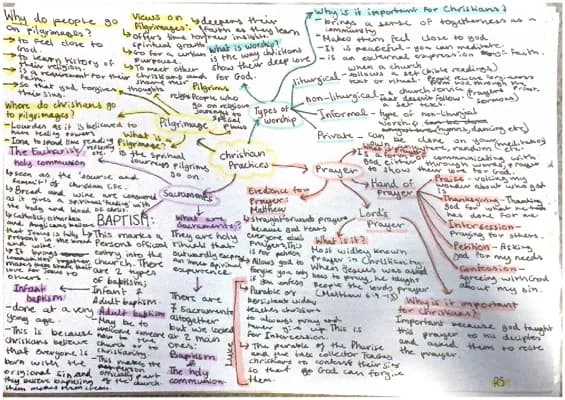 Why do people go
on pilgrimages?
→ to feel close to
God.
→ to learn history of
their religion
→ is a requirement for their
faith
→ so that god forgives
their sins.
Where do christians go
to pilgrimages?
→ Lourdes as it is believed to
have healing powers
→ Iona to spend time reading
The Eucharist/
holy communion
→ seen as the 'source and
summit' of christian life.
→ Bread and wine are consumed
the body and blood of christ.
Views on
Pilgrimages
→ deepens their
faith as they learn
→ offers time for new insight,
spiritual growth
→ Go for a various
purposes.
→ To meet other
Christians and
share their
thoughts
Pilgrims
People who
go on religious
journeys to
special
places
What is worship?
is the way christians
show their deep love
for God.
Pilgrimage
What is a
Pilgrimage?
is the spiritual
journeys pilgrims
go on
Why is it important for Christians?
- brings a sense of togetherness as a
community
- Makes them feel close to god
- It is peaceful - you can meditate
- is an external expression of faith.
Types of
Worship
liturgical - when a church
follows a set (bible readings)
text or ritual.
non-liturgical - a church service
that doesn't follow
a set text
Informal - type of non-liturgical
worship
(hymns, dancing etc)
Private - can be done on your
own
Christian
Practices
Prayer
Is a form of communicating with
god either through words, praise
to show their love for God.
Hand of
Prayer
Praise - voicing my
wonder about who god
is
Thanksgiving - Thanking
god for what he
has done for me
Intercession -
praying for others
Petition - Asking
god for my needs
Confession -
Agreeing with God
about my sin.
Lord's
Prayer
What is it?
Most widley known
prayer in Christianity.
When Jesus was asked
how to pray, he taught
People the lords prayer
(Matthew 6:9-13)
Why is it important
for christians?
Important because god taught
this prayer to his diciples
and asked them to recite
the prayer.
Evidence for
Prayer:
Matthew
→ straightforward prayer
because god hears
everyone elses
prayers. This is
for petition
→ Allows god to
forgive you only
if you confess
Luke
→ Parable of
Persistent widow
teaches christians
to always pray and
never give up. This is
for Intercession.
→ The parable of the Pharisee
and the tax collector teaches
christians to confess their sins
so that God can forgive
them.
Sacraments
What are
Sacraments?
They are holy
rituals that
outwardly express
an inner spiritual
experience.
There are
7 Sacraments
altogether
but we looked
at 2 main
ones.
Baptism
The holy
communion.
BAPTISM:
→ This marks a
Persons official
entry into the
church. There
are 2 types
of baptism:
Infant &
Adult baptism
Adult baptism
- May be to
welcome someone
new to the
church or
christianity.
- This makes the
person
officially part
of the church.
Infant
baptism
- done at a very
young age.
- This is because
christians believe
that everyone is
born with the
origional sin and
they believe baptising
them makes them clean
RS